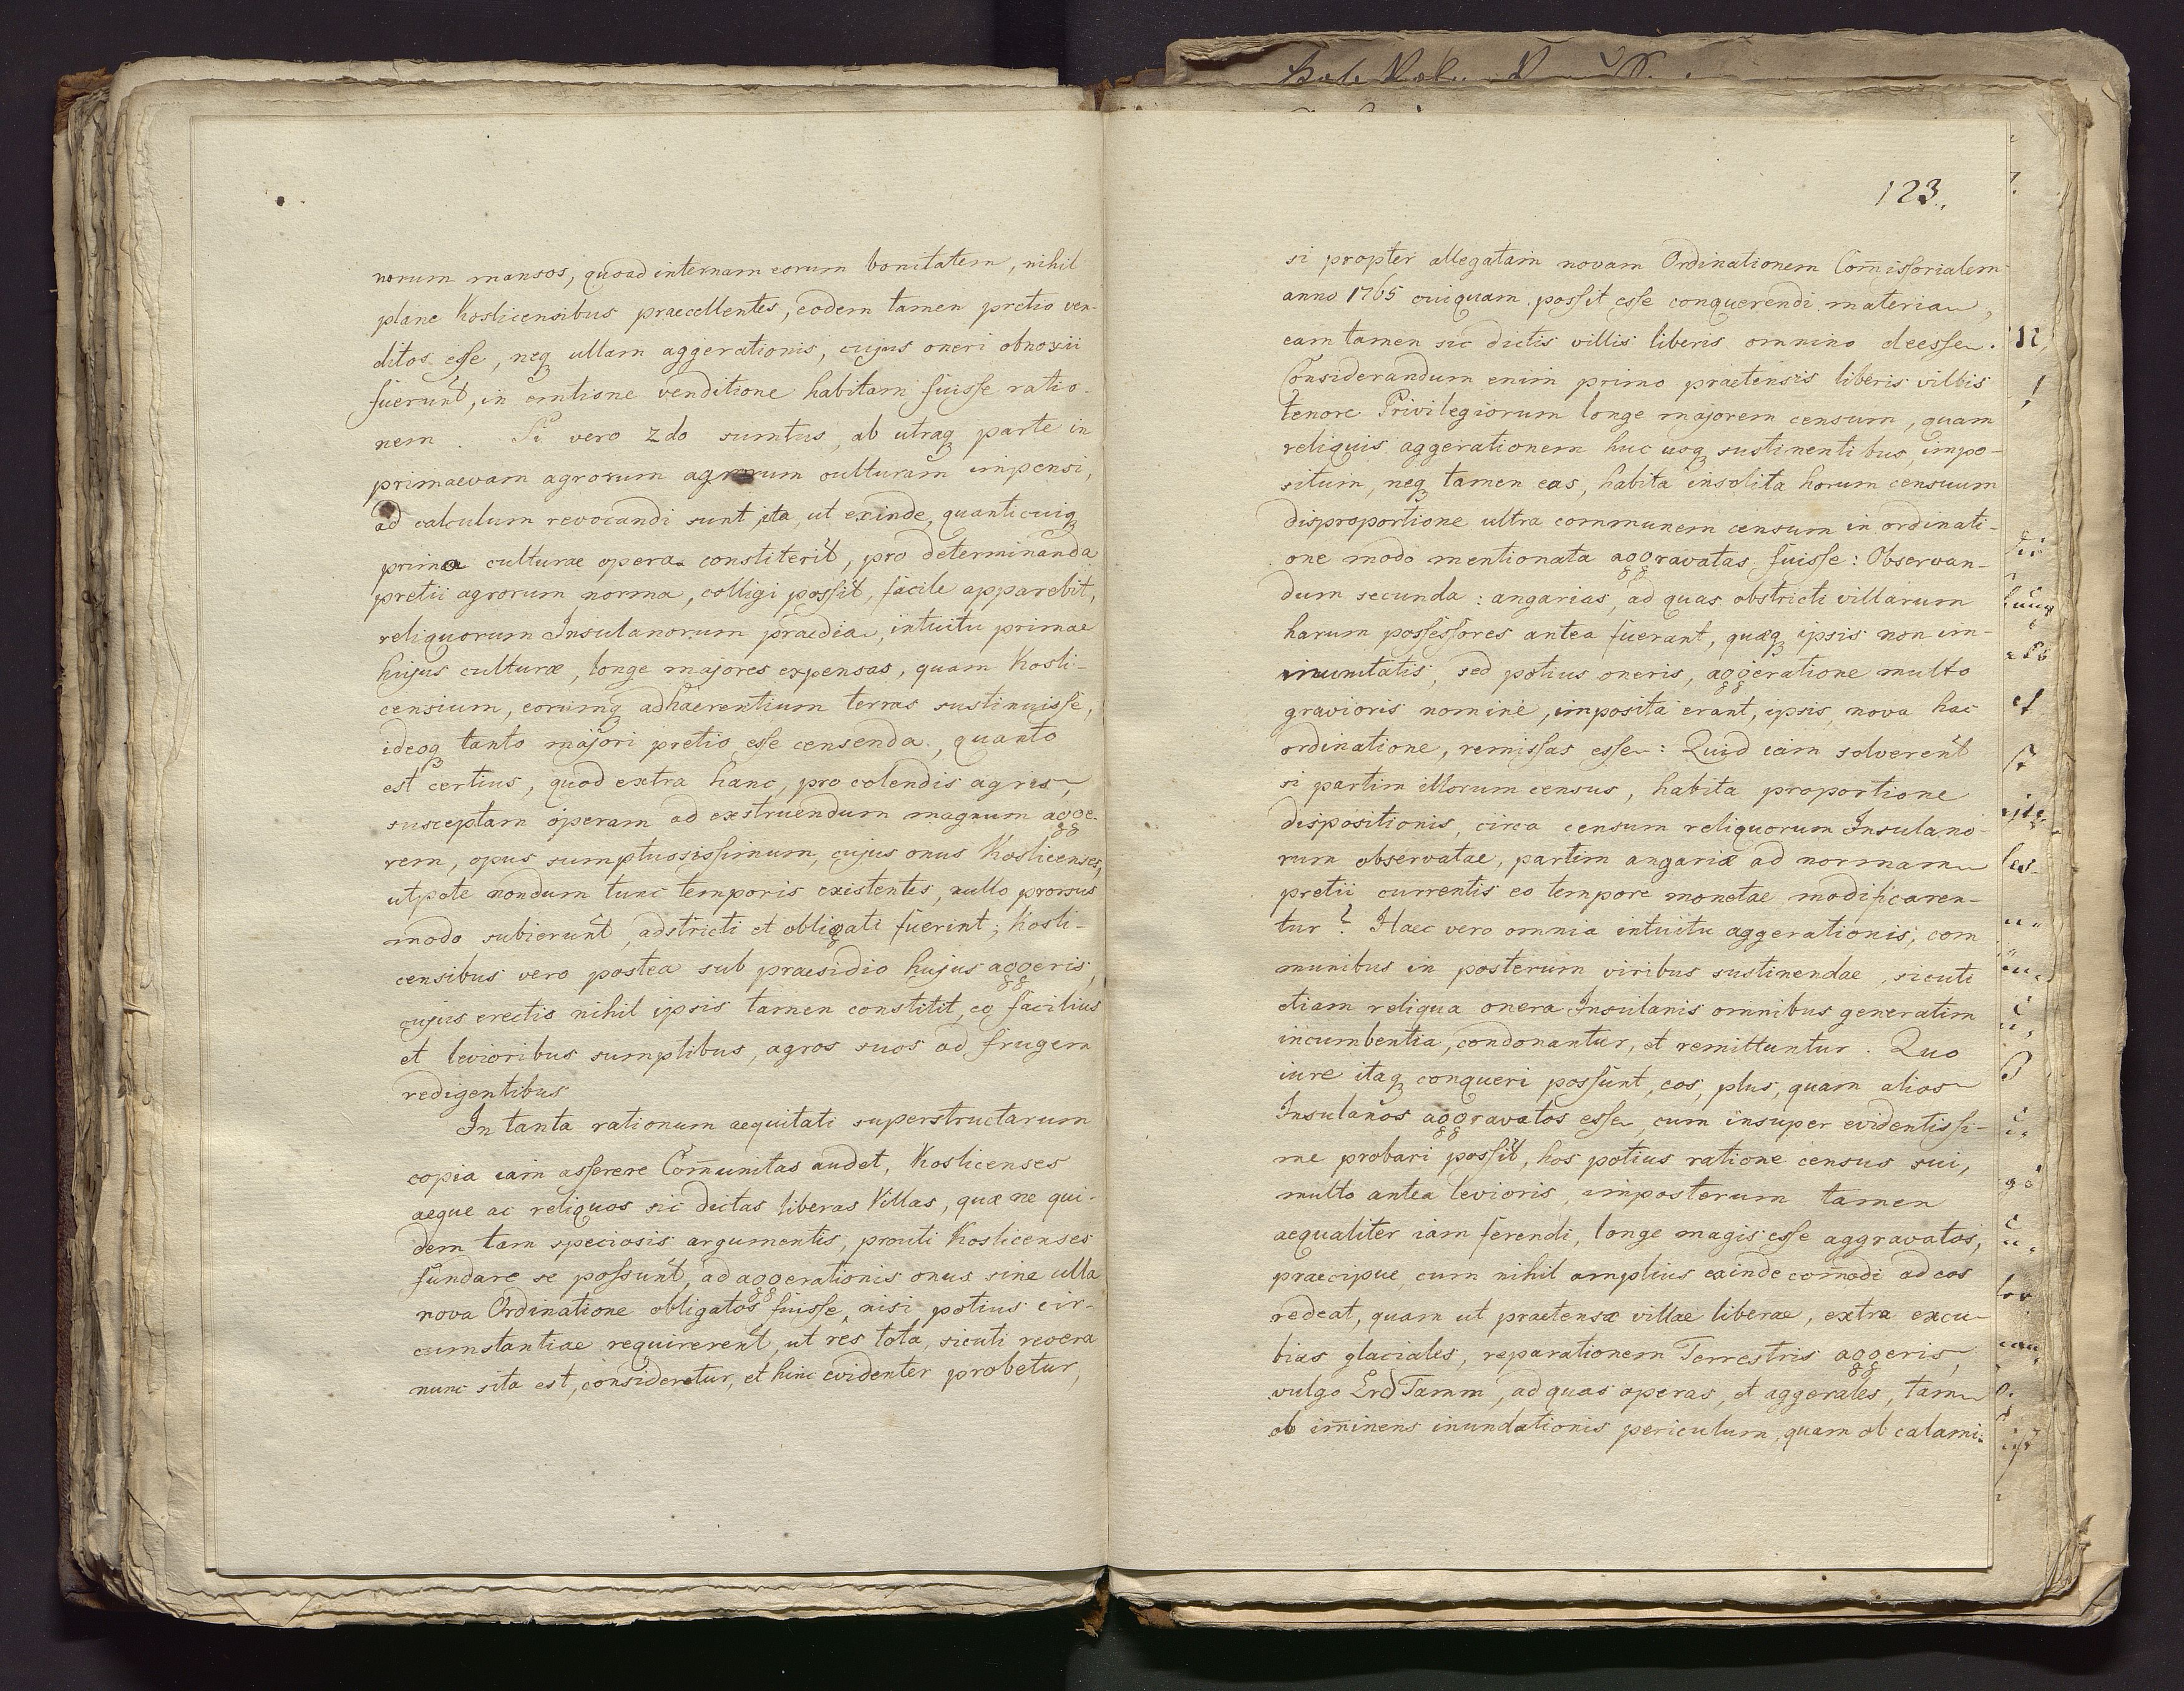 norum mansos, quoad internam eorum bonitatem, nihil
plane Koslicensibus praecellentes, eodem tamen pretio ven-
ditos esse, neq ullam aggerationis, cujus oneri obnoxii
fuerunt, in emtione venditione habitam fuisse ratio-
nem. Si vero 2do sumtus, ab utraq parte in
primaevam agrorum agrorum culturam impensi,
ad calculum revocandi sunt ita, ut exinde, quanti cuiq
prima culturae opera constiterit, pro determinanda
pretii agrorum norma, colligi possit, facile apparebit,
reliquorum Insulanorum praedia, intuitu primae
hujus culturæ, longe majores expensas, quam Kosli-
censium, eorumq adhaerentium terras sustinuisse,
ideoq tanto majori pretio esse censenda, quanto
est certius, quod extra hanc, pro colendis agris,
susceptam operam ad exstruendum magnum agge-
rem, opus sumptuosissimum, cujus onus Koslicenses,
utpote nondum tunc temporis existentes, nullo prorsus
modo subierunt, adstricti et obligati fuerint; Kosli-
censibus vero postea sub praesidio hujus aggeris,
cujus erectio nihil ipsis tamen constitit, eo facilius
et levioribus sumptibus, agros suos ad frugem
redigentibus
In tanta rationum aequitati superstructarum
copia iam asserere Com̄unitas audet, Koslicenses
aeque ac reliquos sic dictas liberas Villas, quæ ne qui-
dem tam speciosis argumentis, prouti Koslicenses
fundare se possunt, ad aggerationis onus sine ulla
nova Ordinatione obligatos fuisse, nisi potius cir-
cumstantiae requirerent, ut res tota, sicuti revera
nunc sita est, consideretur, et hinc evidenter probetur,
123.
si propter allegatam novam Ordinationem Com̄issorialem
anno 1765 cuiquam possit esse conquerendi materia,
eam tamen sic dictis villis liberis omnino deesse.
Considerandum enim primo praetensis liberis villis
tenore Privilegiorum longe majorem censum, quam
reliquis aggerationem huc usq sustinentibus, impo-
situm, neq tamen eas, habita insolita horum censuum
disproportione ultra communem censum in ordinati-
one modo mentionata aggravatas fuisse: Observan-
dum secunda: angarias, ad quas obstricti villarum
harum possessores antea fuerant, quæq ipsis non im-
munitatis, sed potius oneris, aggeratione multo
gravioris nomine, imposita erant, ipsis nova hac
ordinatione, remissas esse: Quid iam solverent
si partim illorum census, habita proportione
dispositionis, circa censum reliquorum Insulano-
rum observatae, partim angariæ ad normam
pretii currentis eo tempore monetae modificaren-
tur? Haec vero omnia intuitu aggerationis, com
munibus in posterum viribus sustinendae, sicuti
etiam reliqua onera Insulanis omnibus generatim
incumbentia, condonantur, et remittuntur. Quo
iure itaq conqueri possunt, eos, plus, quam alios
Insulanos aggravatos esse, cum insuper evidentissi-
me probari possit, hos potius ratione census sui,
multo antea levioris, imposterum tamen
aequaliter iam ferendi, longe magis esse aggravatos,
praecipue cum nihil amplius exinde com̄odi ad eos
redeat, quam ut praetensæ villae liberae, extra excu-
bias glaciales, reparationem Terrestris aggeris,
vulgo Erd Tamm, ad quas operas, et aggerales, tam
ob im̄inens inundationis periculum, quam ob calami-